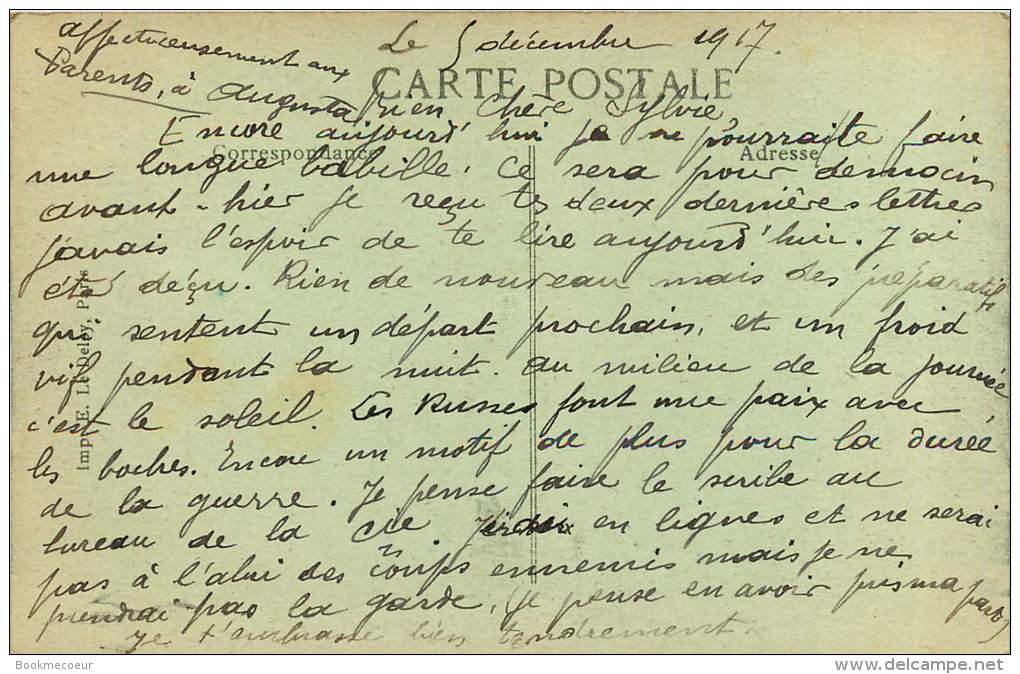 Le 5 décembre 1917.
CARTE POSTALE
Correspondance
Adresse
bien Chère Sylvie
Encore aujourd'hui je ne pourraite faire
une longue babille. Ce sera pour demain
avant-hier je reçu tes deux dernières lettres
j'avais l'espoir de te lire aujourd'hui. J'ai
été déçu. Rien de nouveau mais des préparatifs
qui sentent un départ prochain, et un froid
vif pendant la nuit. au milieu de la journée,
c'est le soleil. Les Russes font une paix avec
les boches. Encore un motif de plus pour la durée
de la guerre. Je pense faire le scribe au
bureau de la Cie en lignes et ne serai
pas à l'abri des coups ennemis mais je ne
prendrai pas la garde, (je pense en avoir pris ma part)
Je t'embrasse bien tendrement
affectueusement aux
Parents, à Augusta
Imp. E. Le Deley, Paris
Bookmecoeur
www.delcampe.net